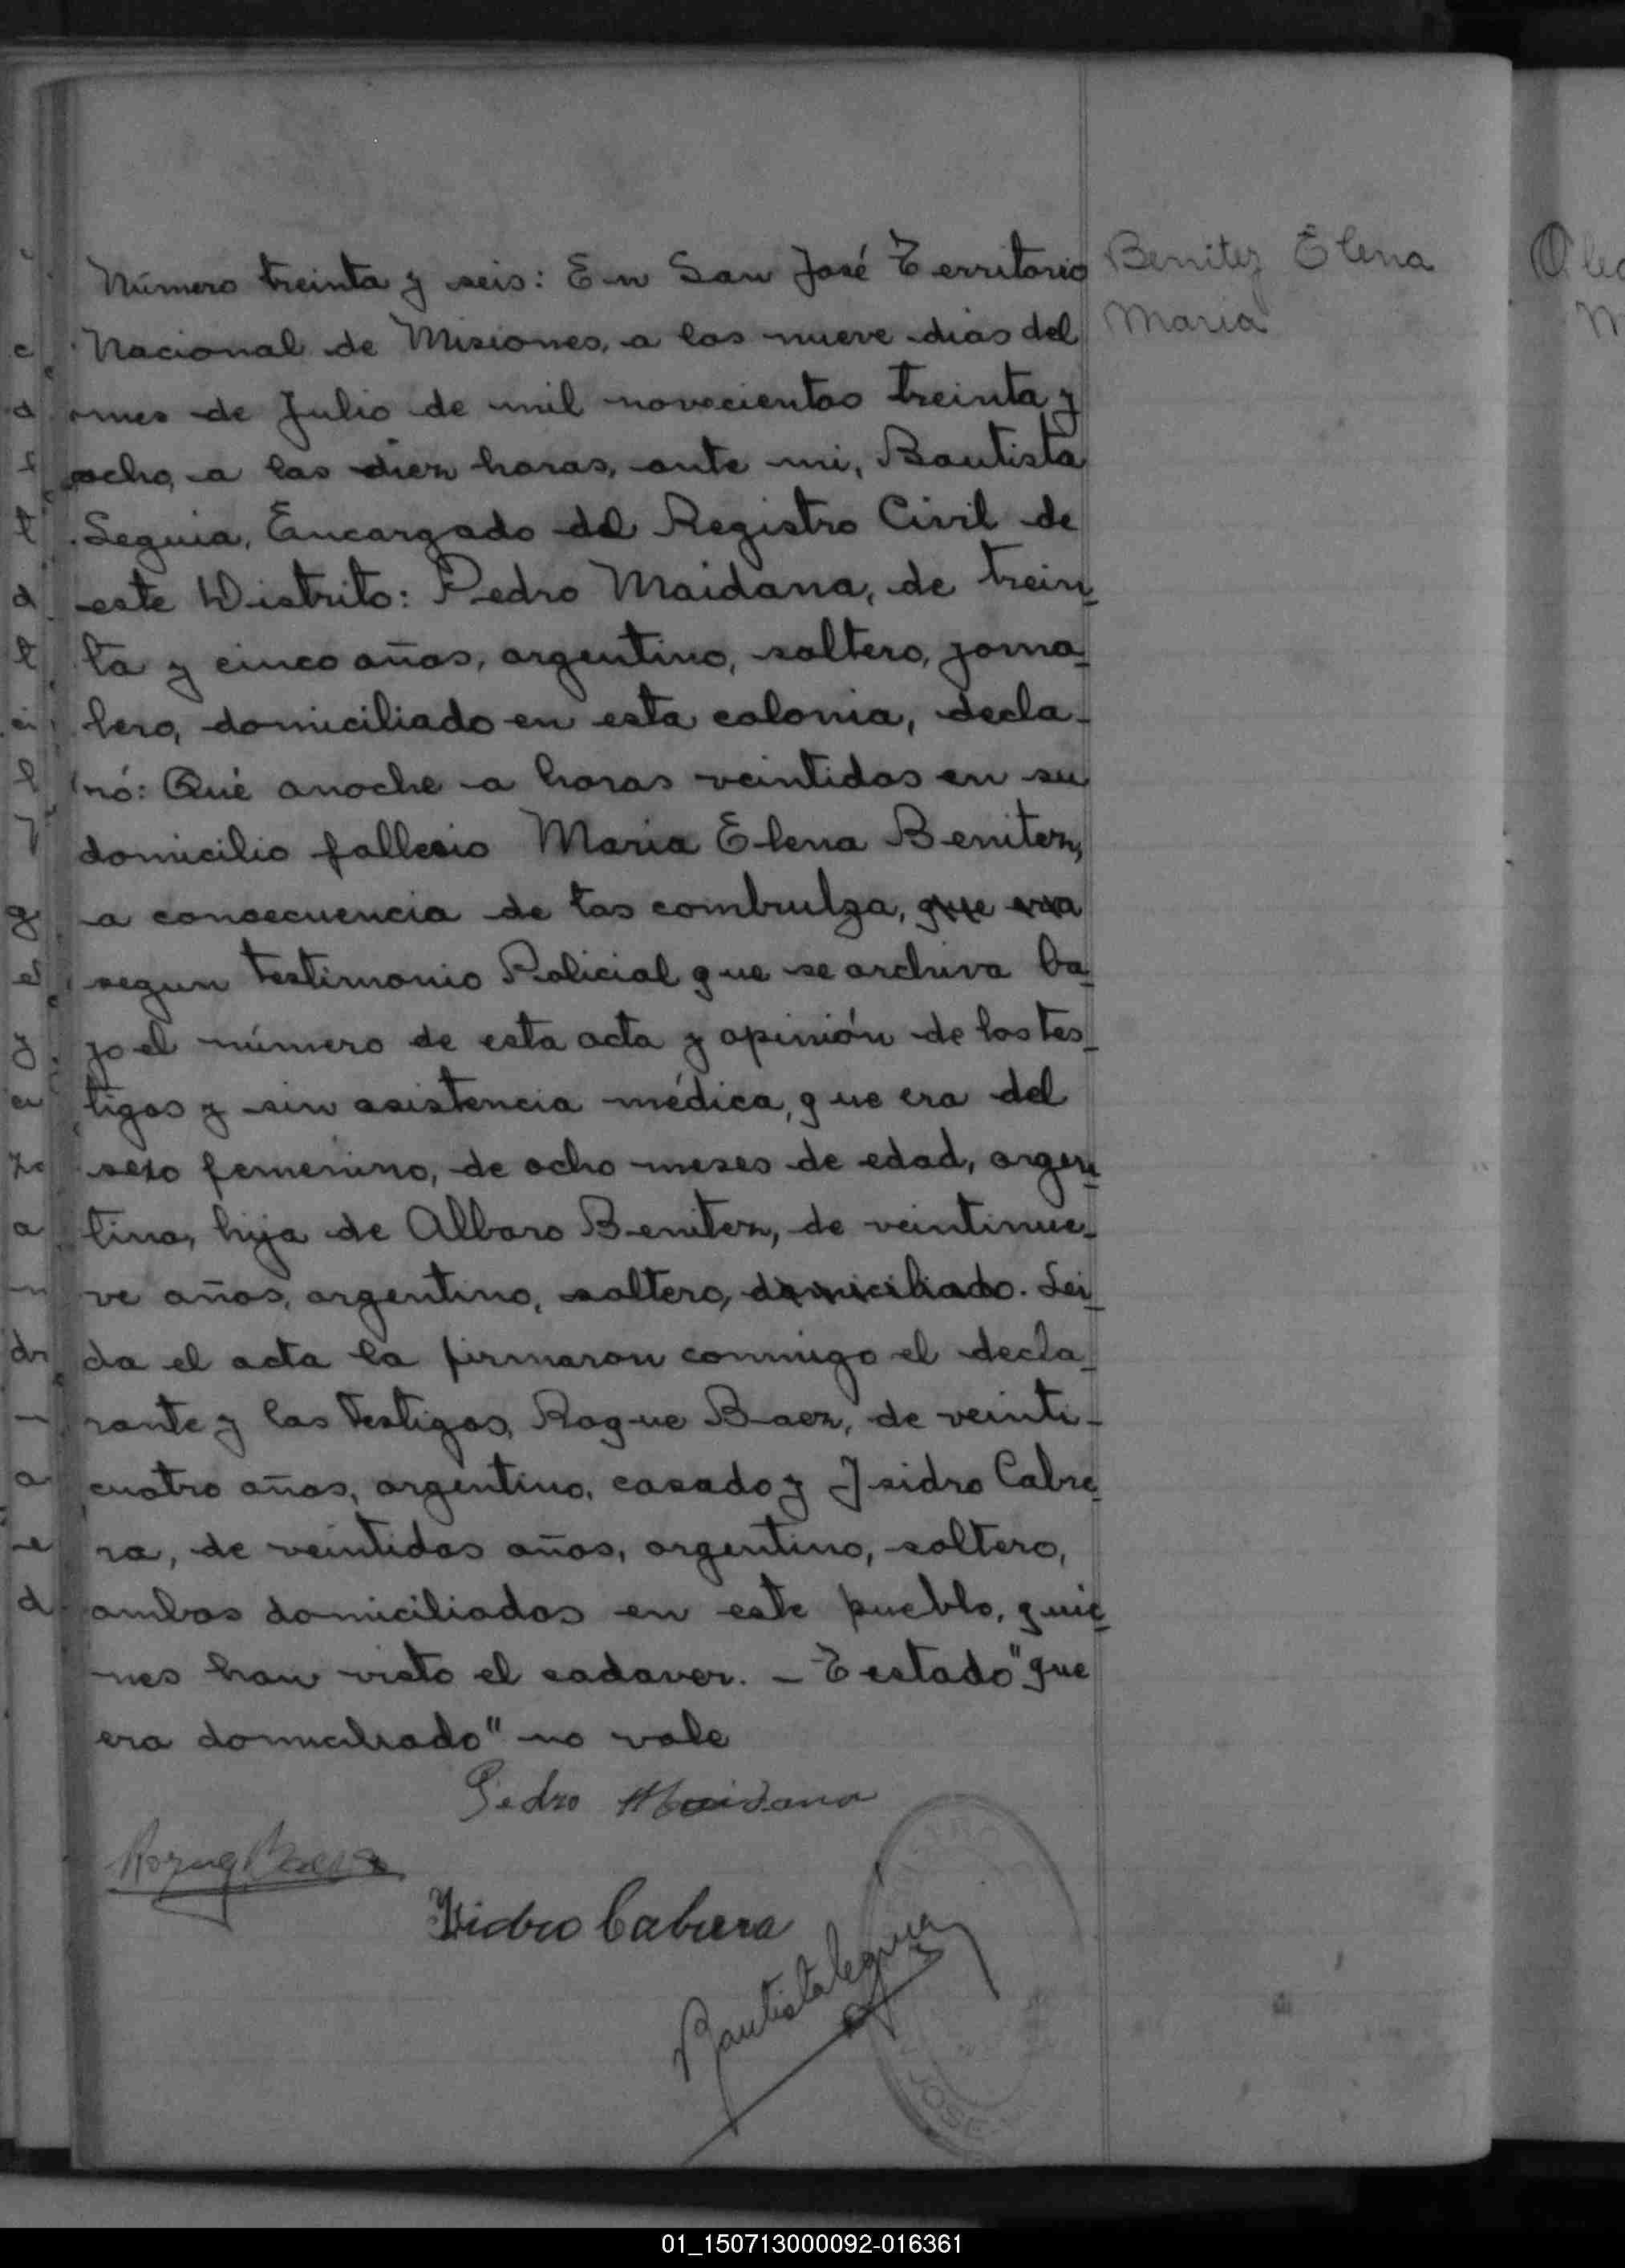 Benitez Elena
Maria
Número treinta y seis: En San José Territorio
Nacional de Misiones, a los nueve dias del
mes de Julio de mil novecientos treinta y
ocho, a las diez horas, ante mi, Bautista
Seguia, Encargado del Registro Civil de
este Distrito: Pedro Maidana, de trein_
ta y cinco años, argentino, soltero, jorna_
lero, domiciliado en esta colonia, decla_
ró: Qué anoche a horas veintidos en su
domicilio fallecio Maria Elena Benitez,
a consecuencia de tos combrulza, que era
segun testimonio Policial que se archiva ba_
jo el número de esta acta y opinión de los tes_
tigos y sin asistencia médica, que era del
sexo femenino, de ocho meses de edad, argen_
tina, hija de Albaro Benitez, de veintinue_
ve años, argentino, soltero, domiciliado. Lei_
da el acta la firmaron conmigo el decla_
rante y los testigos, Roque Baez, de veinti_
cuatro años, argentino, casado y Isidro Cabre_
ra, de veintidos años, argentino, soltero,
ambos domiciliados en este pueblo, quie_
nes han visto el cadaver. _ Testado "que
era domiciliado" no vale
Pedro Maidana
Isidro Cabrera
Bautista Seguia
JOSE
01_150713000092-016361